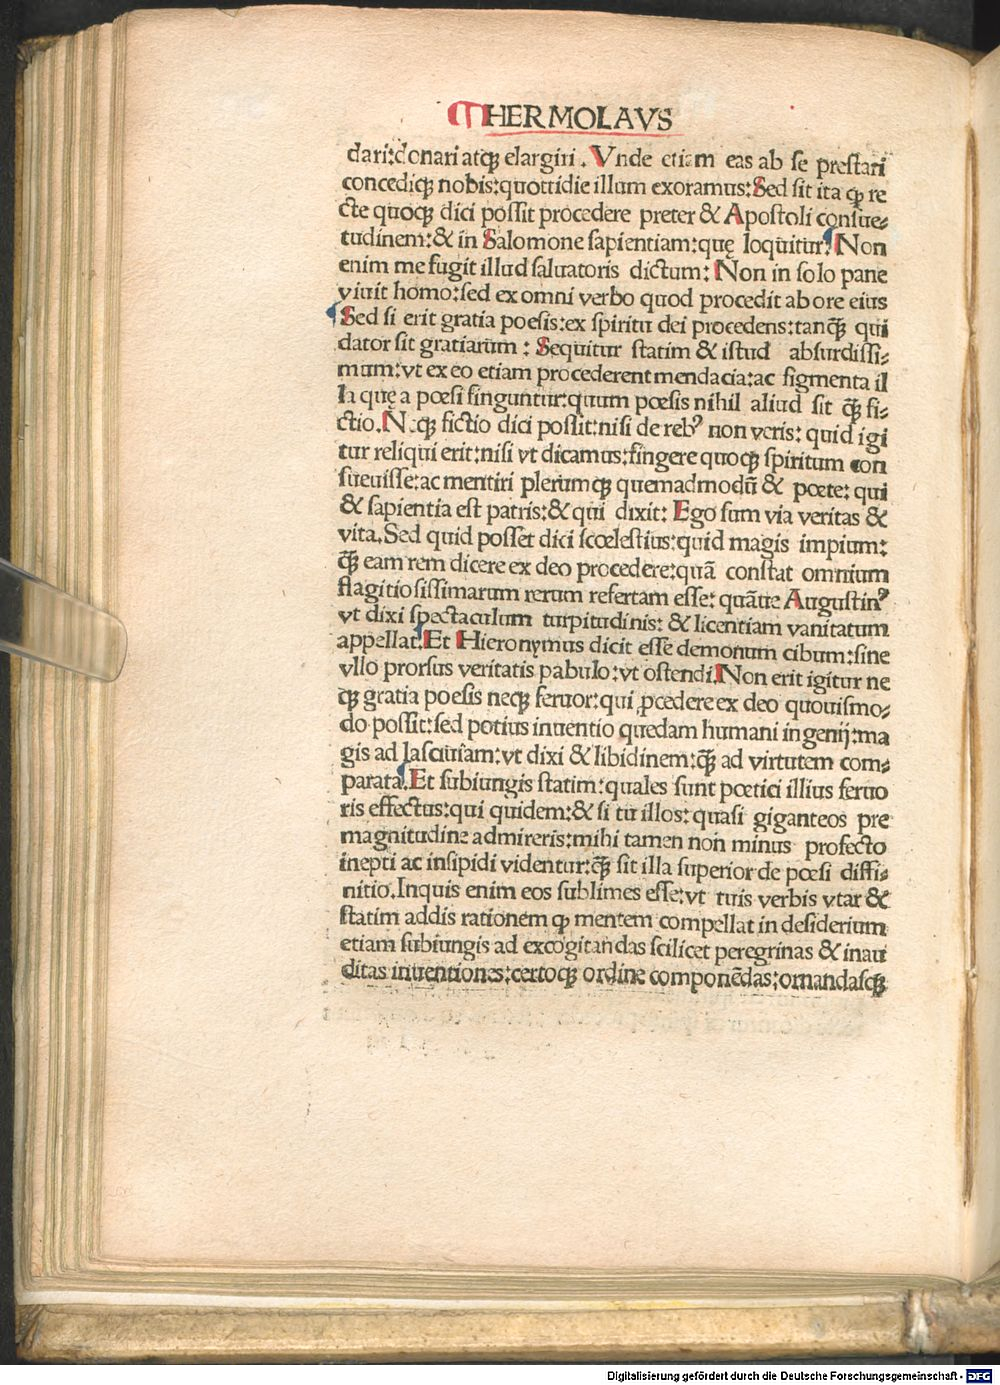 HERMOLAVS
dari:donari atqꝫ elargiri. Vnde etiam eas ab se prestari
concediqꝫ nobis:quottidie illum exoramus:Sed sit ita ꝙ re
cte quoqꝫ dici possit procedere preter & Apostoli consue⸗
tudinem:& in Salomone sapientiam:quę loquitur. Non
enim me fugit illud saluatoris dictum: Non in solo pane
viuit homo:sed ex omni verbo quod procedit ab ore eius
Sed si erit gratia poesis:ex spiritu dei procedens:tanꝗ̃ qui
dator sit gratiarum: Sequitur statim & istud absurdissi⸗
mum:vt ex eo etiam procederent mendacia:ac figmenta il
la quę a poesi finguntur:quum poesis nihil aliud sit ꝗ̃ fi⸗
ctio. Neqꝫ fictio dici possit:nisi de rebꝰ non veris: quid igi
tur reliqui erit:nisi vt dicamus:fingere quoqꝫ spiritum con
sueuisse:ac mentiri plerumqꝫ quemadmodū & poete: qui
& sapientia est patris:& qui dixit: Ego sum via veritas &
vita. Sed quid posset dici scœlestius:quid magis impium:
ꝗ̃ eam rem dicere ex deo procedere:quā constat omnium
flagitiosissimarum rerum refertam esse: quāue Augustinꝰ
vt dixi spectaculum turpitudinis: & licentiam vanitatum
appellat. Et Hieronymus dicit esse demonum cibum:sine
vllo prorsus veritatis pabulo:vt ostendi. Non erit igitur ne
qꝫ gratia poesis neqꝫ feruor:qui ꝓcedere ex deo quouismo⸗
do possit:sed potius inuentio quedam humani ingenij:ma
gis ad lasciuiam:vt dixi & libidinem:ꝗ̃ ad virtutem com⸗
parata. Et subiungis statim:quales sunt pœtici illius feruo
ris effectus:qui quidem:& si tu illos: quasi giganteos pre
magnitudine admireris:mihi tamen non minus profecto
inepti ac insipidi videntur:ꝗ̃ sit illa superior de pœsi diffi⸗
nitio. Inquis enim eos sublimes esse:vt tuis verbis vtar &
statim addis rationem ꝙ mentem compellat in desiderium
etiam subiungis ad excogitandas scilicet peregrinas & inau
ditas inuentiones:certoqꝫ ordine componēdas:ornandasqꝫ
Digitalisierung gefördert durch die Deutsche Forschungsgemeinschaft - DFG